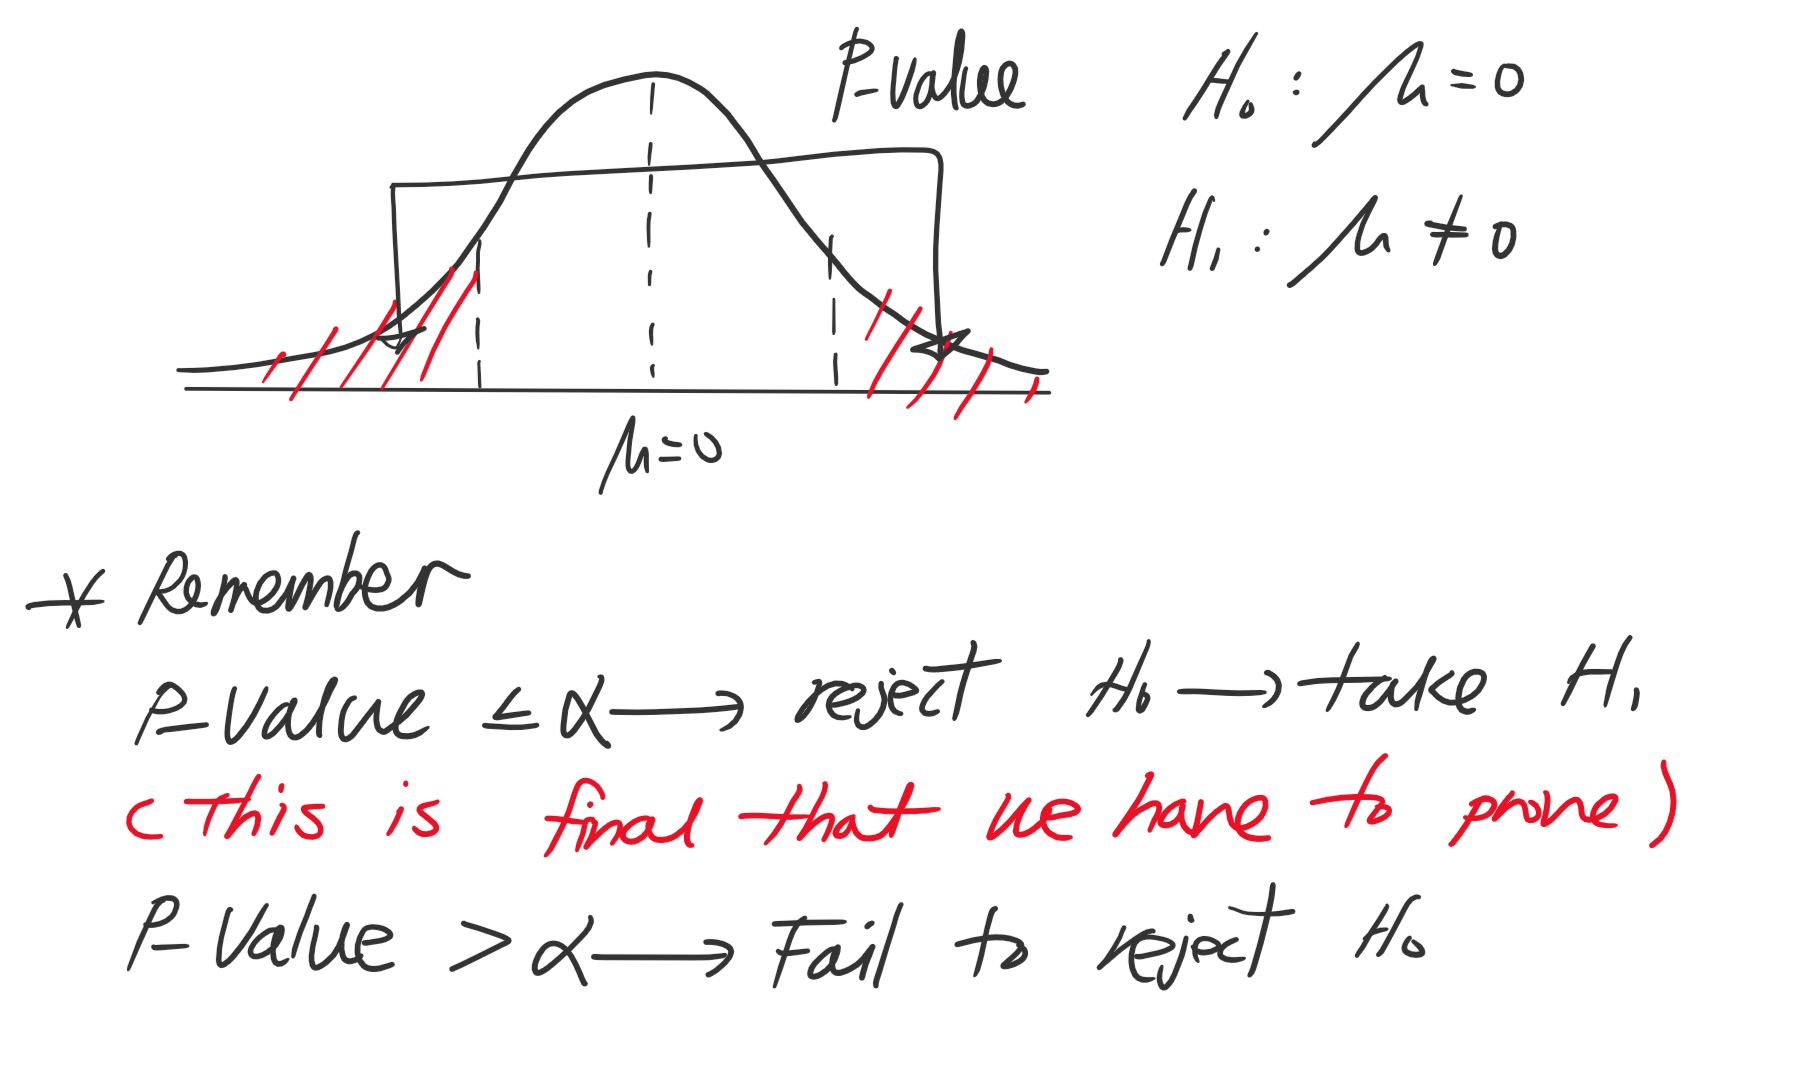 P-value
H₀ : μ = 0
H₁ : μ ≠ 0
μ=0
* Remember
P-Value ≤ α → reject H₀ → take H₁
(this is final that we have to prove)
P-Value > α → Fail to reject H₀